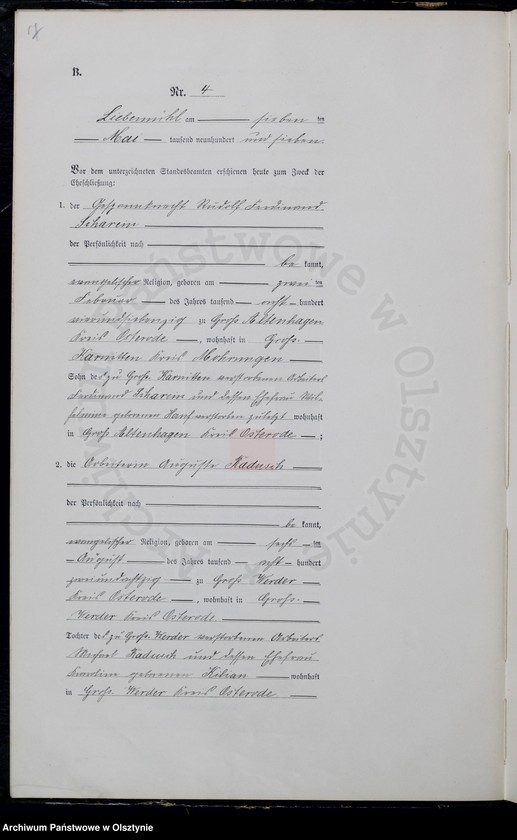 B.
Nr. 4
Liebemühl am sieben ten
Mai tausend neunhundert und sieben.
Vor dem unterzeichneten Standesbeamten erschienen heute zum Zweck der
Eheschließung:
1. der Gespannknecht Rudolf Ferdinand
Scharein
der Persönlichkeit nach
be kannt,
evangelischer Religion, geboren am zwei ten
Februar des Jahres tausend acht hundert
vierundsiebenzig zu Groß Altenhagen
Kreis Osterode, wohnhaft in Groß-
Karnitten Kreis Mohrungen
Sohn des zu Groß Karnitten verstorbenen Arbeiters
Ferdinand Scharein und dessen Ehefrau Wil-
helmine geborenen verstorben zuletzt wohnhaft
in Groß Altenhagen Kreis Osterode;
2. die Arbeiterin Auguste Radusch
der Persönlichkeit nach
be kannt,
evangelischer Religion, geboren am sechs ten
August des Jahres tausend acht hundert
zweiundachtzig zu Groß Werder
Kreis Osterode, wohnhaft in Groß-
Werder Kreis Osterode
Tochter des zu Groß Werder verstorbenen Arbeiters
Michael Radusch und dessen Ehefrau
Karoline geborenen Kilian wohnhaft
in Groß Werder Kreis Osterode
Archiwum Państwowe w Olsztynie
Archiwum Państwowe w Olsztynie